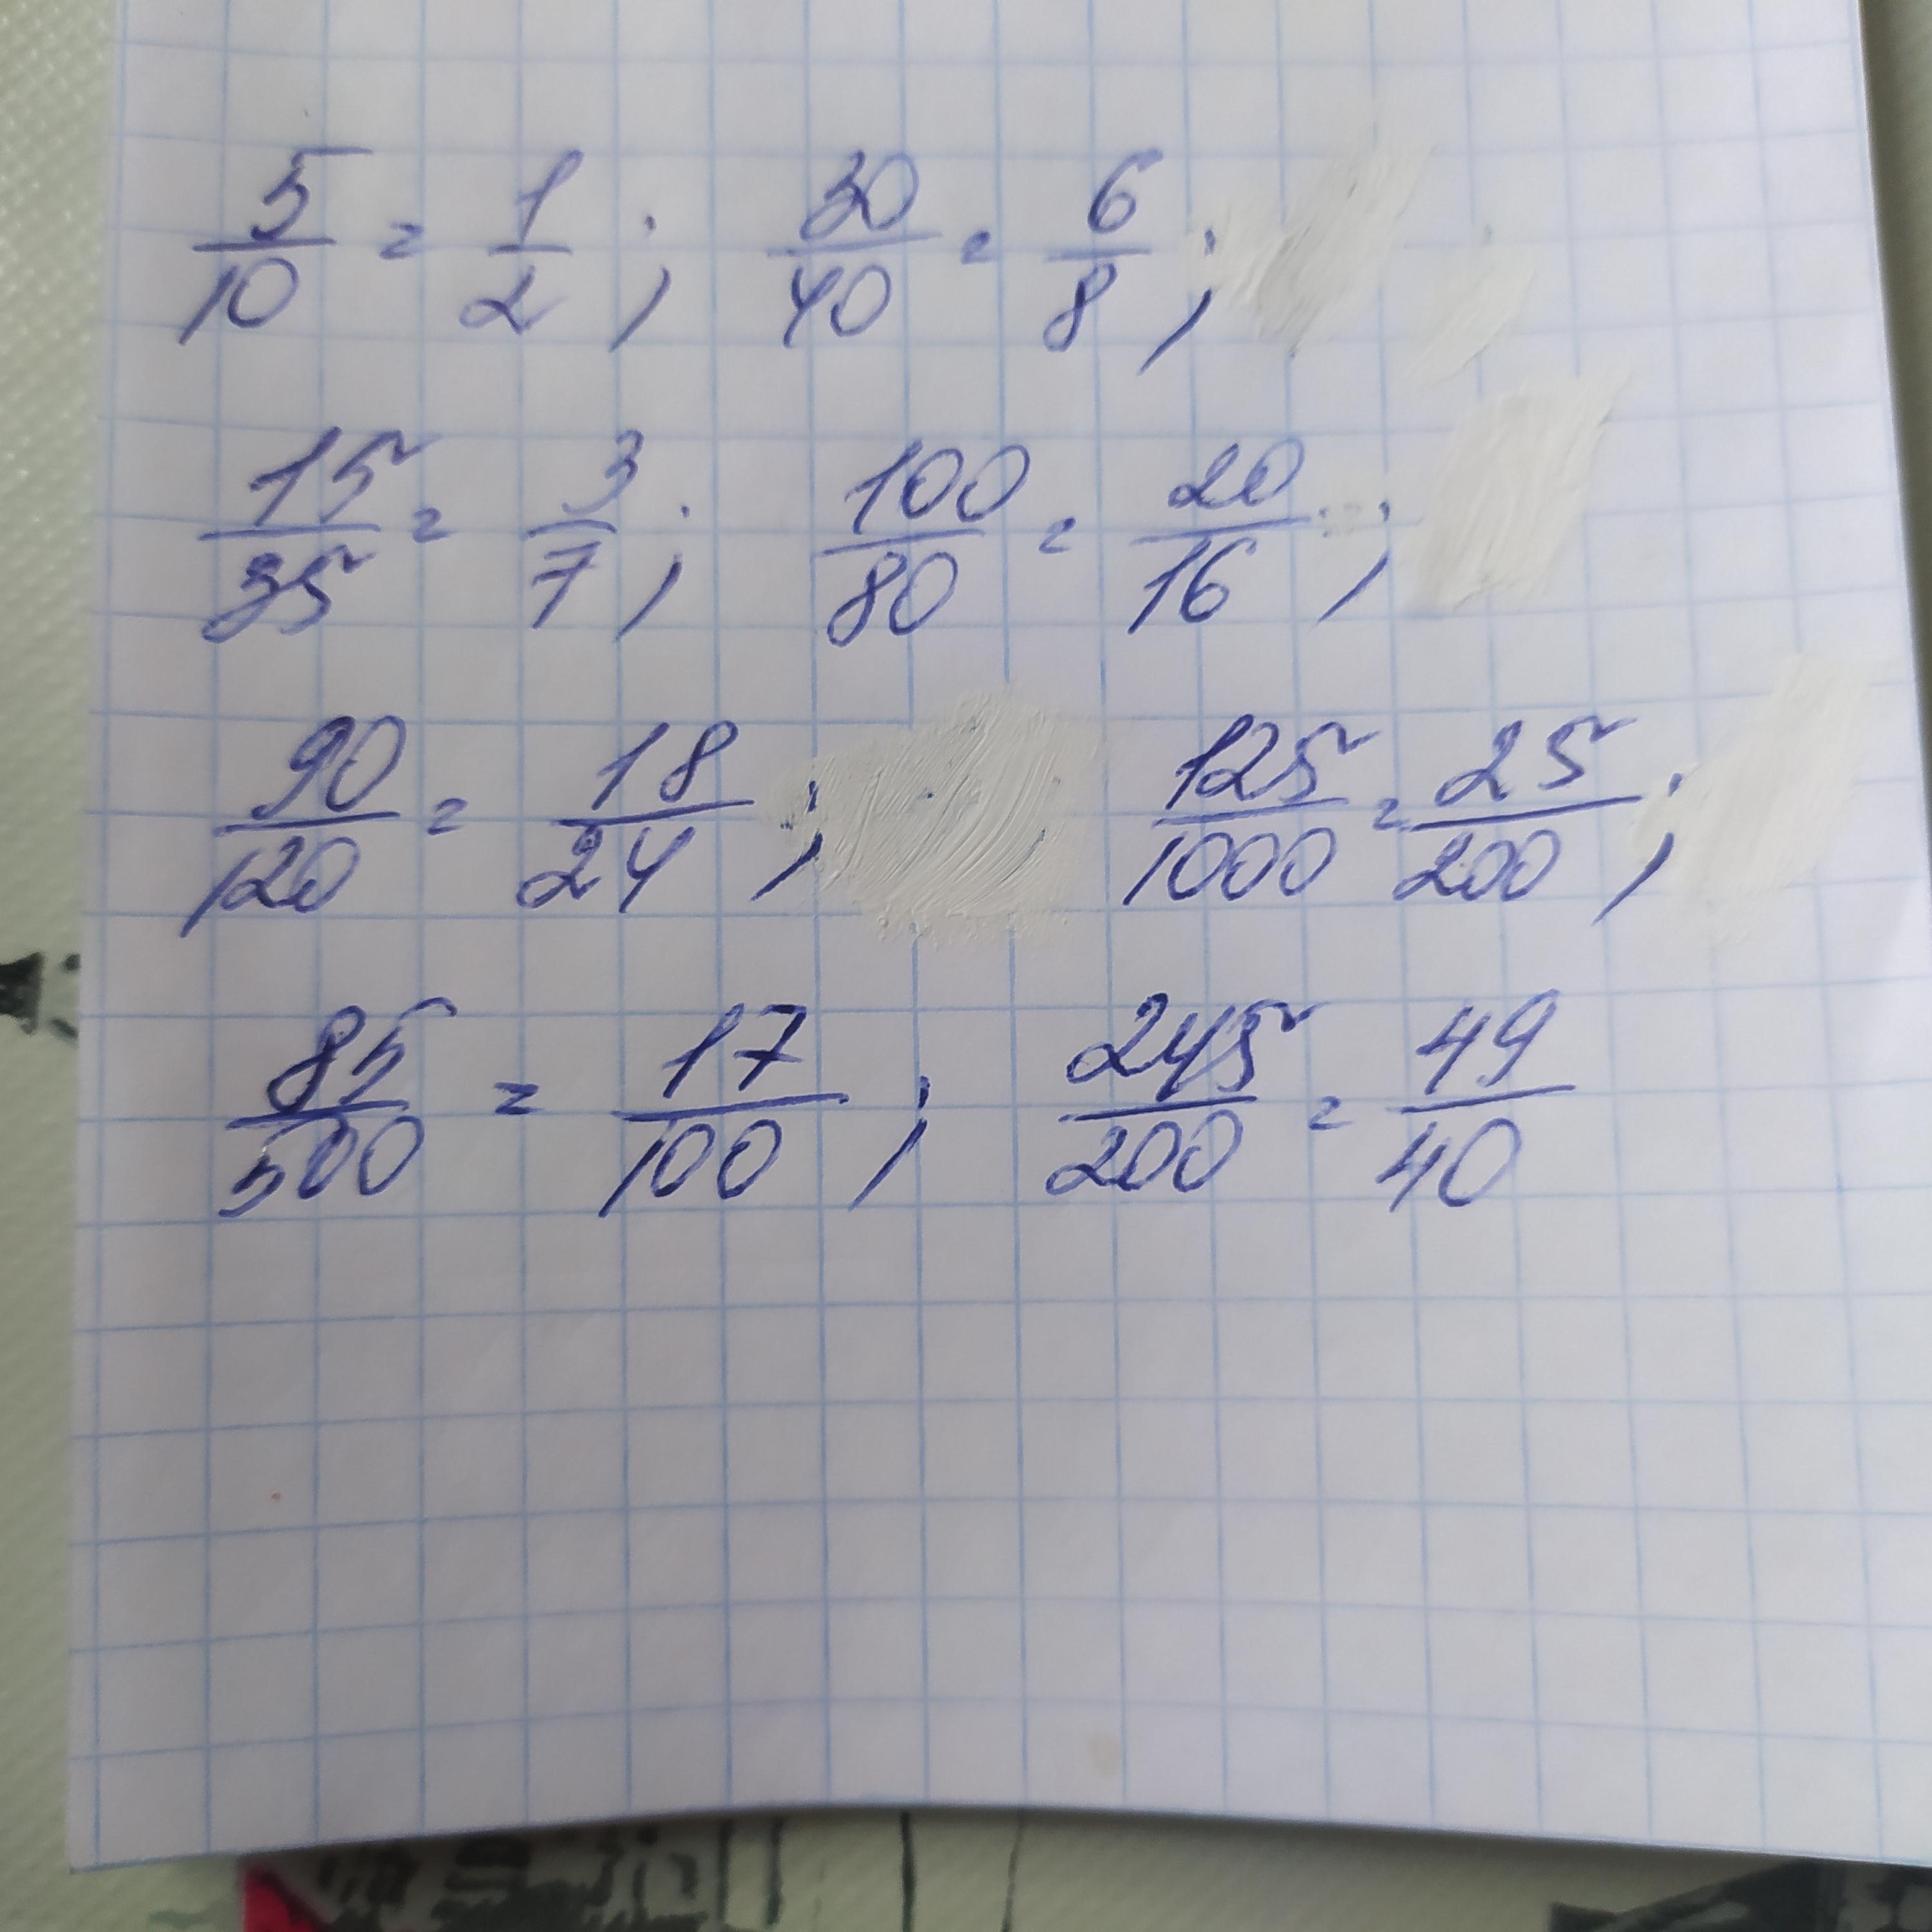 5/10 = 1/2 ; 30/40 = 6/8 ;
15/35 = 3/7 ; 100/80 = 20/16 ;
90/120 = 18/24 ; 125/1000 = 25/200 ;
85/500 = 17/100 ; 245/200 = 49/40